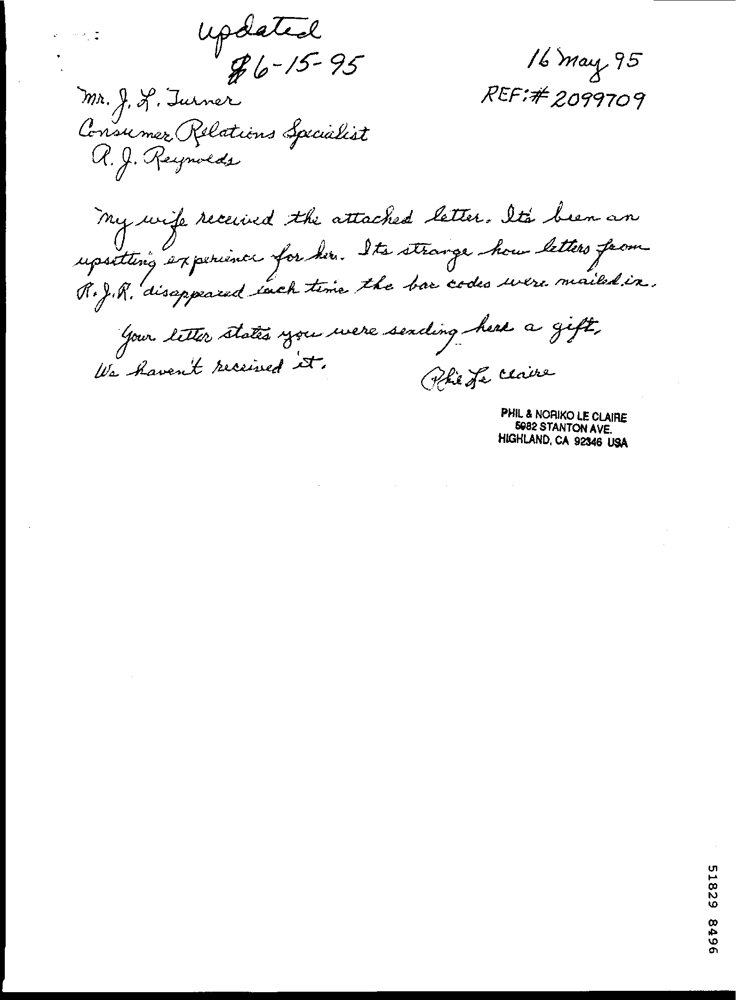 updated
6-15-95
16 May 95
REF:# 2099709
Mr. J. L. Turner
Consumer Relations Specialist
R. J. Reynolds
My wife received the attached letter. It's been an
upsetting experience for her. Its strange how letters from
R.J.R. disappeared each time the bar codes were mailed in.
Your letter states you were sending her a gift,
We haven't received it.
Phil Le Claire
PHIL & NORIKO LE CLAIRE
5982 STANTON AVE.
HIGHLAND, CA 92346 USA
51829 8496